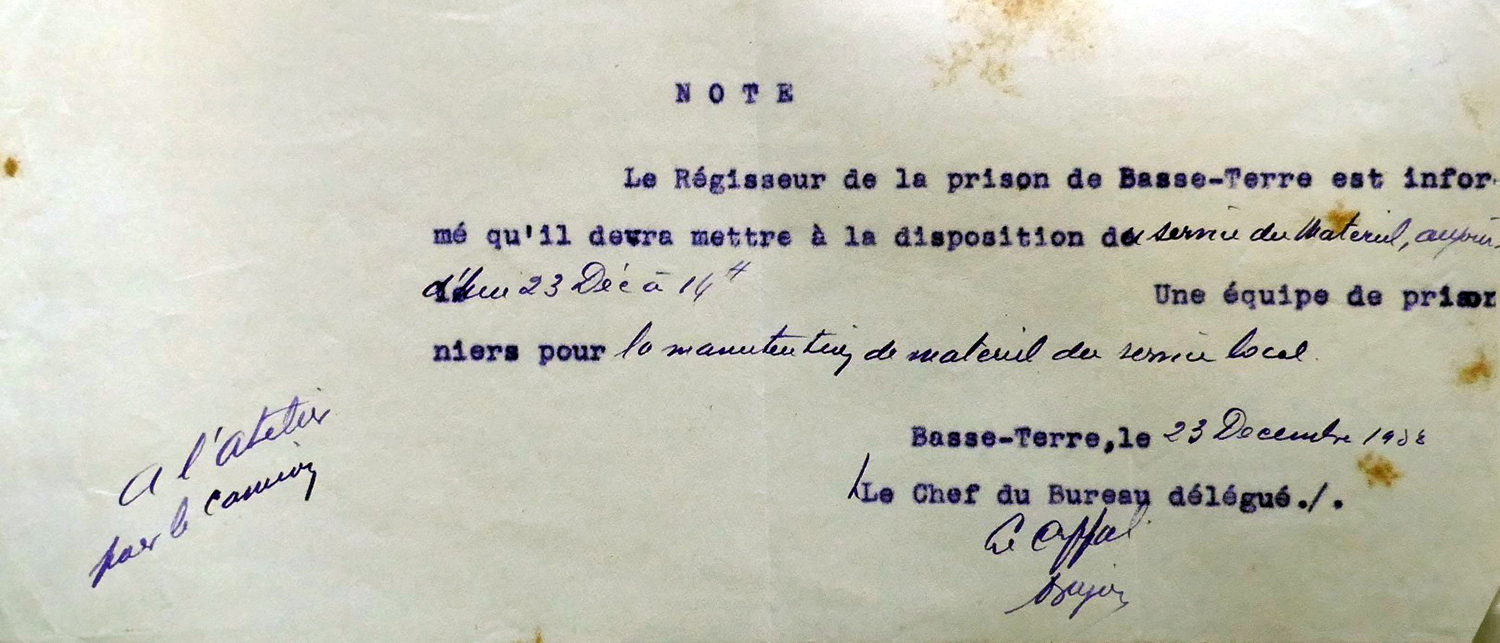 NOTE
Le Régisseur de la prison de Basse-Terre est infor-
mé qu'il devra mettre à la disposition du service du Materiel, aujour
d'hui 23 Déc à 14 H
Une équipe de prison
niers pour la manutention de materiel du service local.
A l'atelier
pour le camion
Basse-Terre, le 23 Decembre
Le Chef du Bureau délégué./.